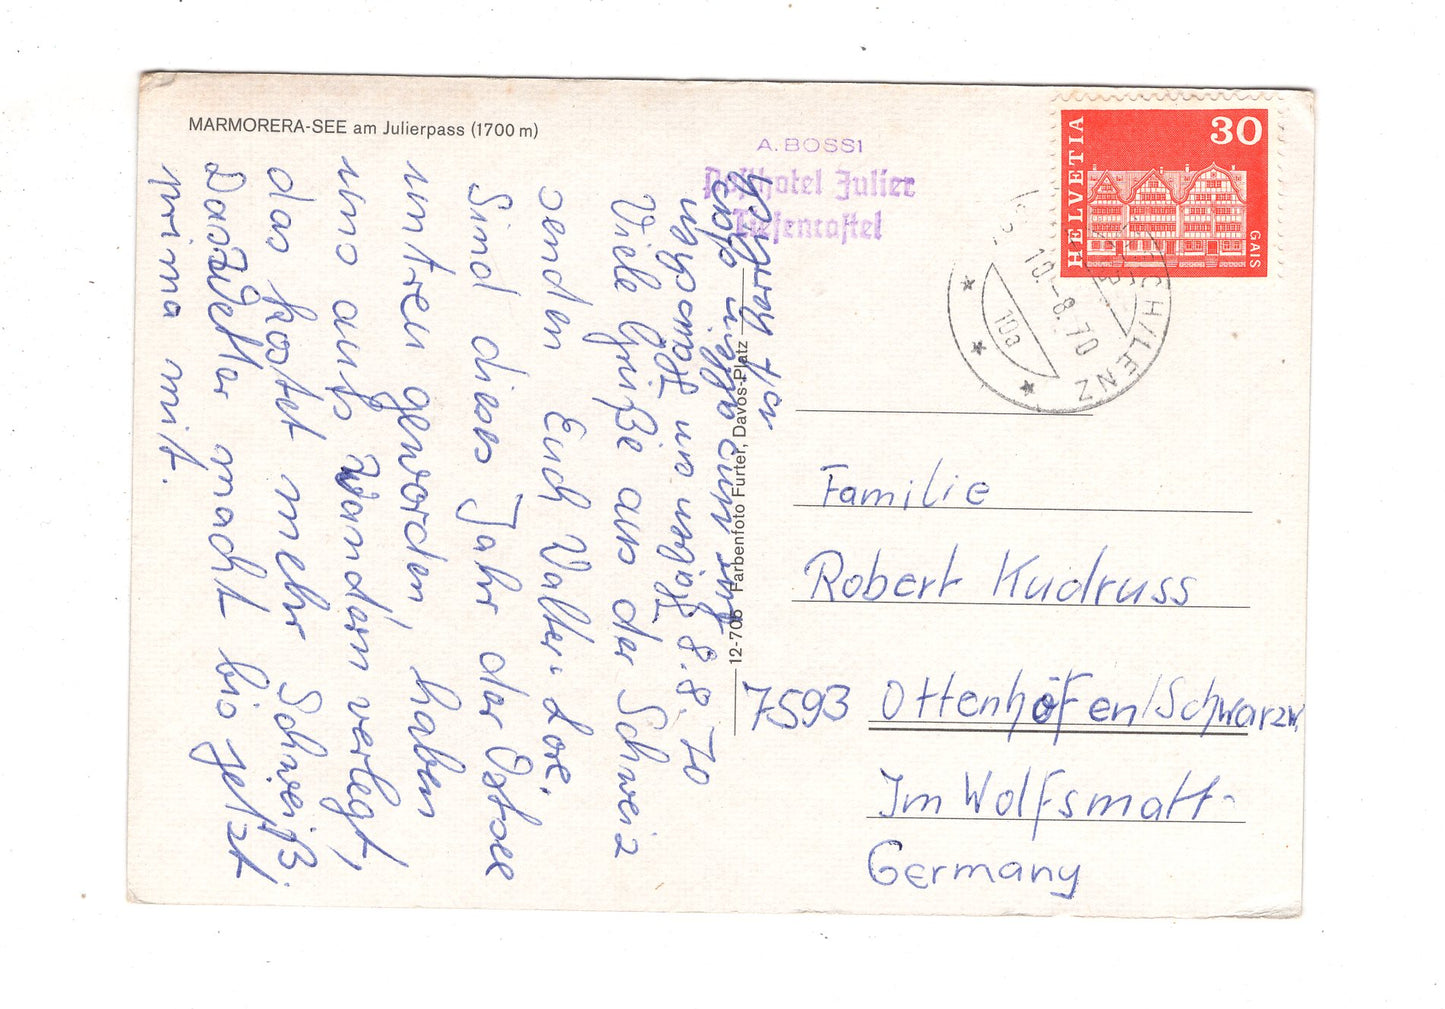 MARMORERA-SEE am Julierpass (1700 m)
A. BOSSI
Posthotel Julier
Tiefencastel
HELVETIA
30
GAIS
10.-8.70
10a
CH/LENZ
12-706 Farbenfoto Furter, Davos-Platz
8.8.70
Viele Grüße aus der Schweiz
senden Euch Walter u. Lore.
Sind dieses Jahr der Ostsee
untreu geworden, haben
uns aufs Wandern verlegt,
das kostet mehr Schweiß.
Das Wetter macht bis jetzt
prima mit.
Familie
Robert Kudruss
7593 Ottenhöfen/Schwarzw.
Im Wolfsmatt
Germany